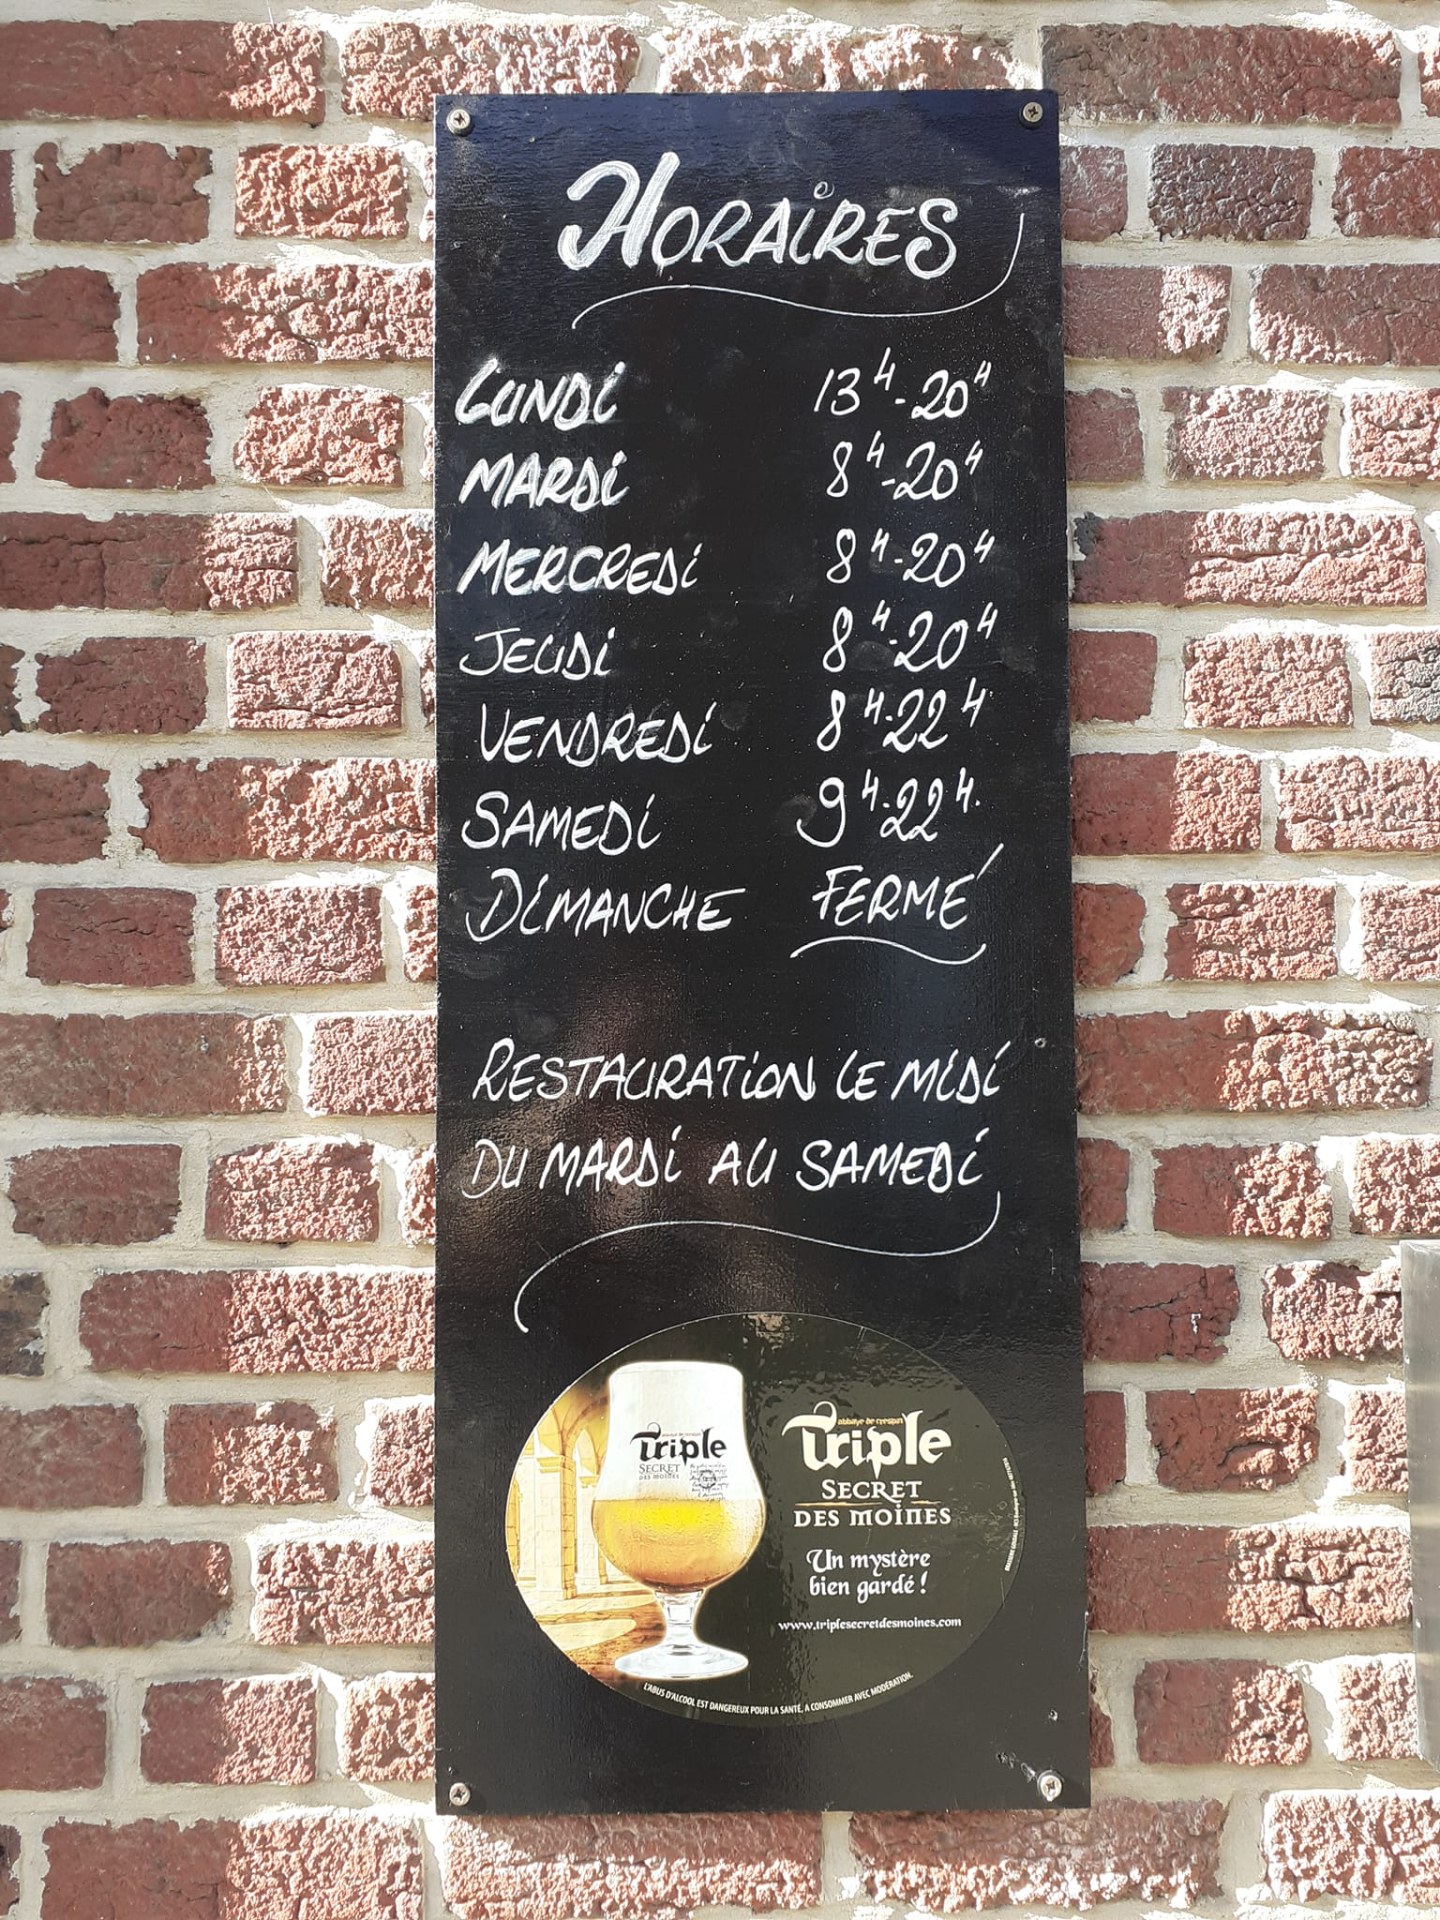 HORAIRES
LUNDI 13H-20H
MARDI 8H-20H
MERCREDI 8H-20H
JEUDI 8H-20H
VENDREDI 8H-22H
SAMEDI 9H-22H.
DIMANCHE FERMÉ
RESTAURATION LE MIDI
DU MARDI AU SAMEDI
abbaye de crespin
Triple
SECRET
DES MOINES
Triple
SECRET
DES MOINES
Un mystère
bien gardé !
www.triplesecretdesmoines.com
L'ABUS D'ALCOOL EST DANGEREUX POUR LA SANTÉ, A CONSOMMER AVEC MODÉRATION.